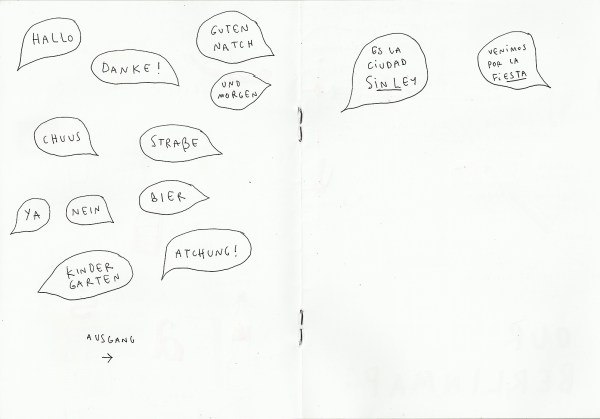 HALLO
DANKE!
GUTEN
NATCH
UND
MORGEN
CHUUS
STRAßE
YA
NEIN
BIER
KINDER
GARTEN
ATCHUNG!
AUSGANG
→
ES LA
CIUDAD
SIN LEY
VENIMOS
POR LA
FIESTA